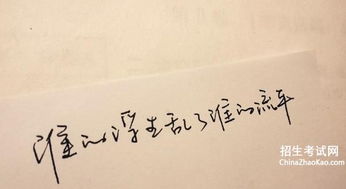 谁的浮生乱了谁的流年
招生考试网
ChinaZhaoKao.com